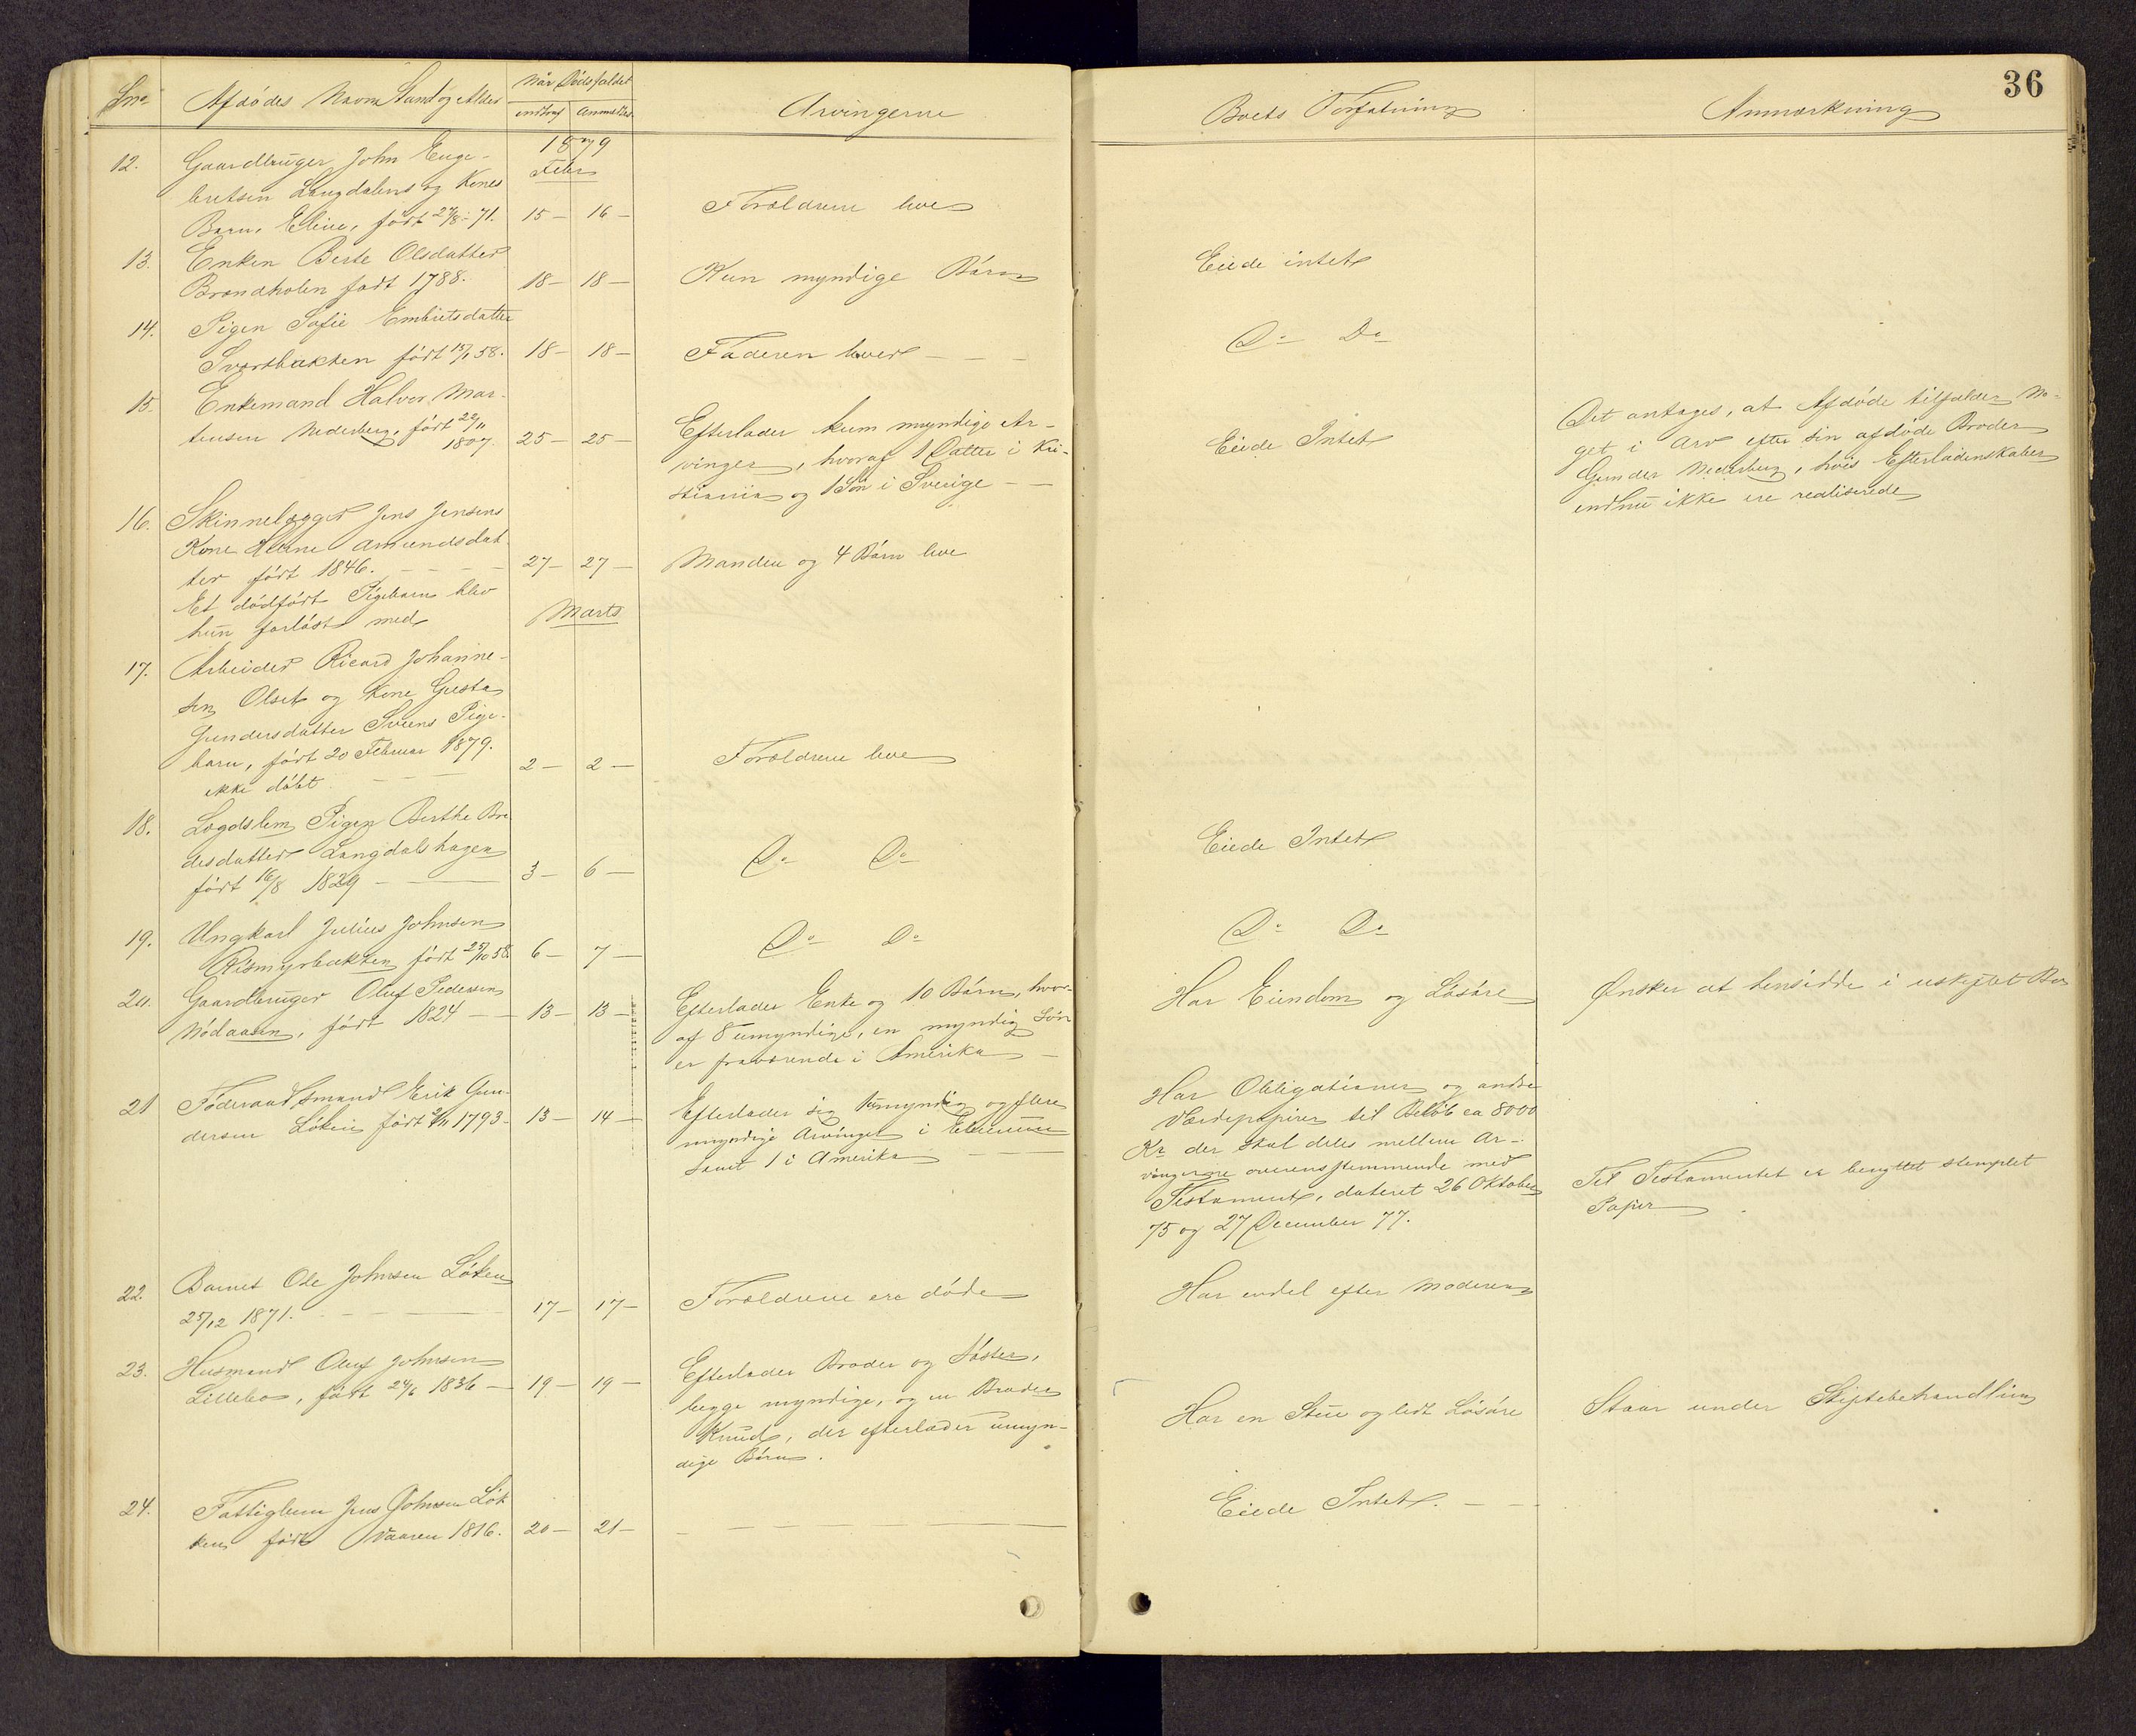 36
Lnr Afdödes Navn Stand og Alder Når Dödsfaldet indtraf Anmeldtes Arvingerne Boets Forfatning Anmærkning
1879
Febr
12. Gaardbruger John Enge-
bretsen Langdalens og Kones
Barn, Eline, født 27/8-71. 15- 16- Forældrene leve
13. Enken Berte Olsdatter
Brændholen født 1788. 18- 18- Kun myndige Börn Eiede intet
14. Pigen Sofie Embretsdatter
Svartbakken født 15/1 58. 18- 18- Faderen lever - - - Do Do
15. Enkemand Halvor Mar-
tensen Nederberg, født 22/11
1807. 25- 25-
Efterlader kun myndige Ar-
vinger, hvoraf 1 Datter i Kri-
stiania og 1 Sön i Sverige - -
Eiede Intet
Det antages, at Afdöde tilfalder No-
get i Arv efter sin afdöde Broder
Gunder Nederberg, hvis Efterladenskaber
endnu ikke ere realiserede
16. Skinnelægger Jens Jensens
Kone Amundsdat-
ter født 1846. - - - - 27- 27- Manden og 4 Börn leve
Et dödfödt Pigebarn blev
hun forlöst med
Marts
17. Arbeider Ricard Johanne-
sen Olset og Kone Gusta
Gundersdatter Sveens Pige-
barn, født 20 Februar 1879.
ikke döbt - - - 2- 2- Forældrene leve
18. Lægdslem Pigen Berthe Bre
desdatter Langdalshagen
født 16/8 1829 - - 3- 6- Do Do Eiede Intet
19. Ungkarl Julius Johnsen
Rismyrbakken født 25/10 58. 6- 7- Do Do Do Do
20. Gaardbruger Oluf Pedersen
Mødaasen, født 1824 - - 13- 13-
Efterlader Enke og 10 Börn, hvor-
af 8 umyndige, en myndig Sön
er fraværende i Amerika -
Har Eiendom og Lösöre
Ønsker at hensidde i uskiftet Bo
21 Föderaadsmand Erik Gun-
dersen Löken født 1793- 13- 14-
Efterlader sig 1 umyndig og flere
myndige Arvinger i
samt 1 i Amerika - - -
Har Obligationer og andre
Værdipapirer til Belöb ca 8000
Kr der skal deles mellem Ar-
vingerne overensstemmende med
Testament, dateret 26 Oktober
75 og 27 December 77.
Til Testamentet er benyttet stemplet
Papir
22. Barnet Ole Johnsen Löken
25/12 1871. - - - 17- 17- Forældrene ere döde Har endel efter Moderen
23. Husmand Oluf Johnsen
Lillebo, født 24/6 1836 - 19- 19-
Efterlader Broder og Söster,
begge myndige, og en Broder
Knud, der efterlader umyn-
dige Börn.
Har en Stue og lidt Lösöre
Staar under Skiftebehandling
24. Fattiglem Jens Johnsen Lök
ken født Vaaren 1816. 20- 21- - - - Eiede Intet. - -